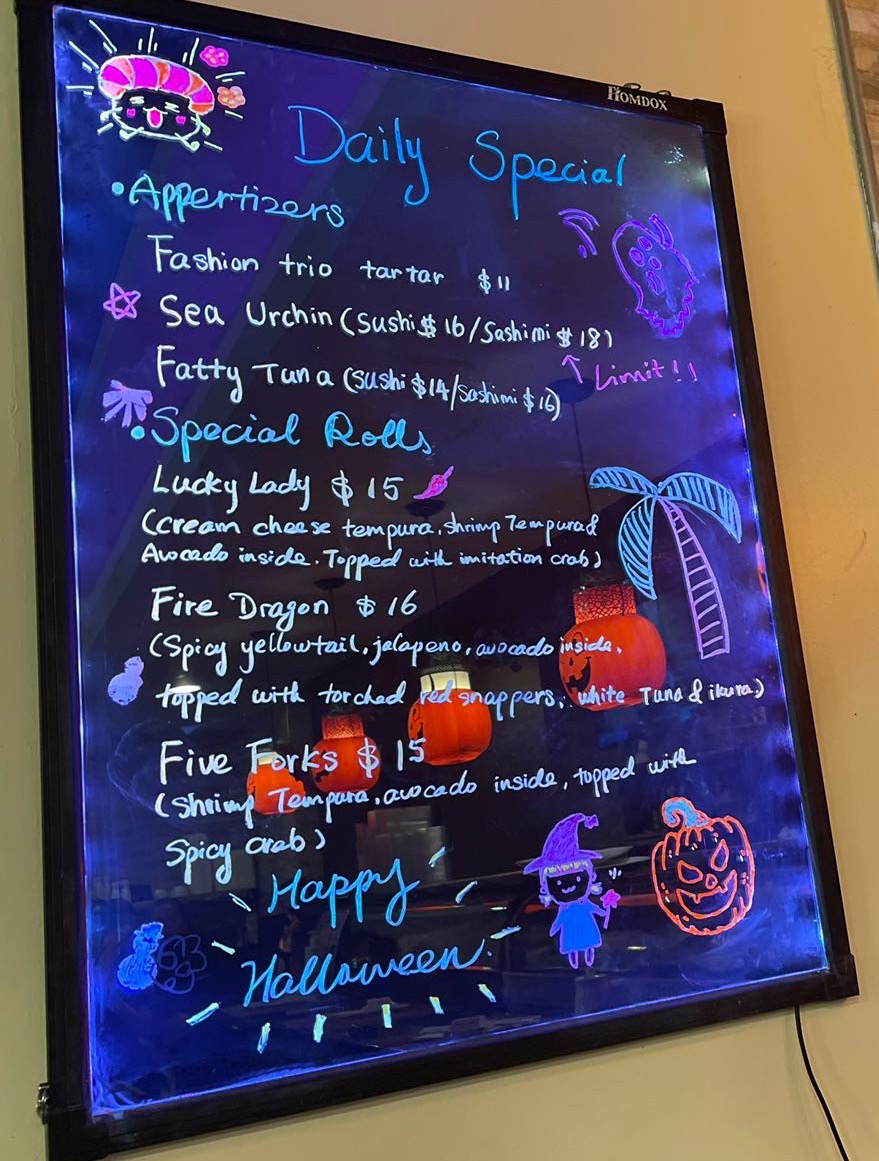 HOMDOX
Daily Special
•Appertizers
Fashion trio tartar $11
Sea Urchin (Sushi $16/Sashimi $18)
Limit!!
Fatty Tuna (sushi $14/sashimi $16)
•Special Rolls
Lucky Lady $15
(cream cheese tempura, shrimp Tempura &
Avocado inside. Topped with imitation crab)
Fire Dragon $16
(Spicy yellowtail, jalapeno, avocado inside,
topped with torched red snappers, white Tuna & ikura)
Five Forks $15
(Shrimp Tempura, avocado inside, topped with
Spicy crab)
Happy
Halloween